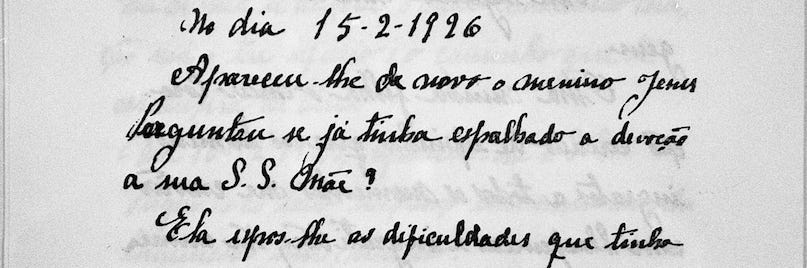 No dia 15-2-1926
Apareceu-lhe de novo o menino Jesus
Perguntou se já tinha espalhado a devoção
à sua S. S. Mãe?
Ela expos-lhe as dificuldades que tinha